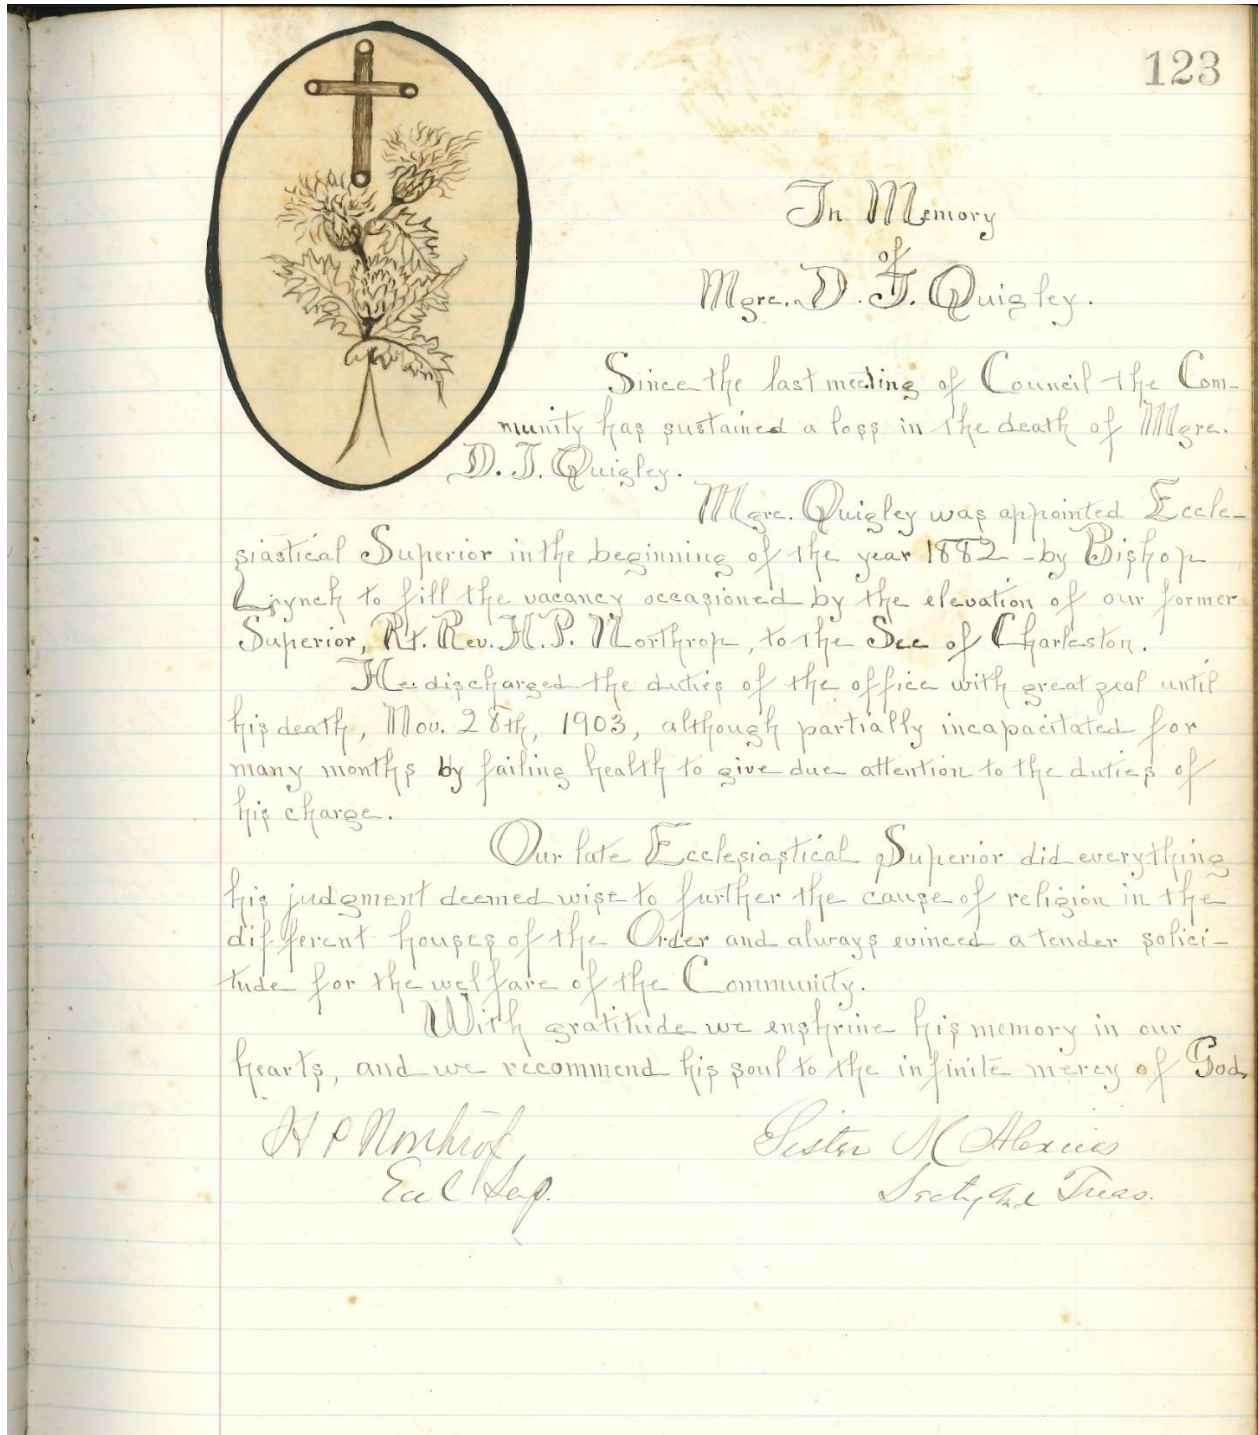 123
In Memory
of
Mgre. D. J. Quigley.
Since the last meeting of Council the Com-
munity has sustained a loss in the death of Mgre.
D. J. Quigley.
Mgre. Quigley was appointed Eccle-
siastical Superior in the beginning of the year 1882 - by Bishop
Lynch to fill the vacancy occasioned by the elevation of our former
Superior, Rt. Rev. H. P. Northrop, to the See of Charleston.
He discharged the duties of the office with great zeal until
his death, Nov. 28th, 1903, although partially incapacitated for
many months by failing health to give due attention to the duties of
his charge.
Our late Ecclesiastical Superior did everything
his judgment deemed wise to further the cause of religion in the
different houses of the Order and always evinced a tender solici-
tude for the welfare of the Community.
With gratitude we enshrine his memory in our
hearts, and we recommend his soul to the infinite mercy of God.
H P Northrop Sister M Alexius
Eccl Sup. Secty and Treas.